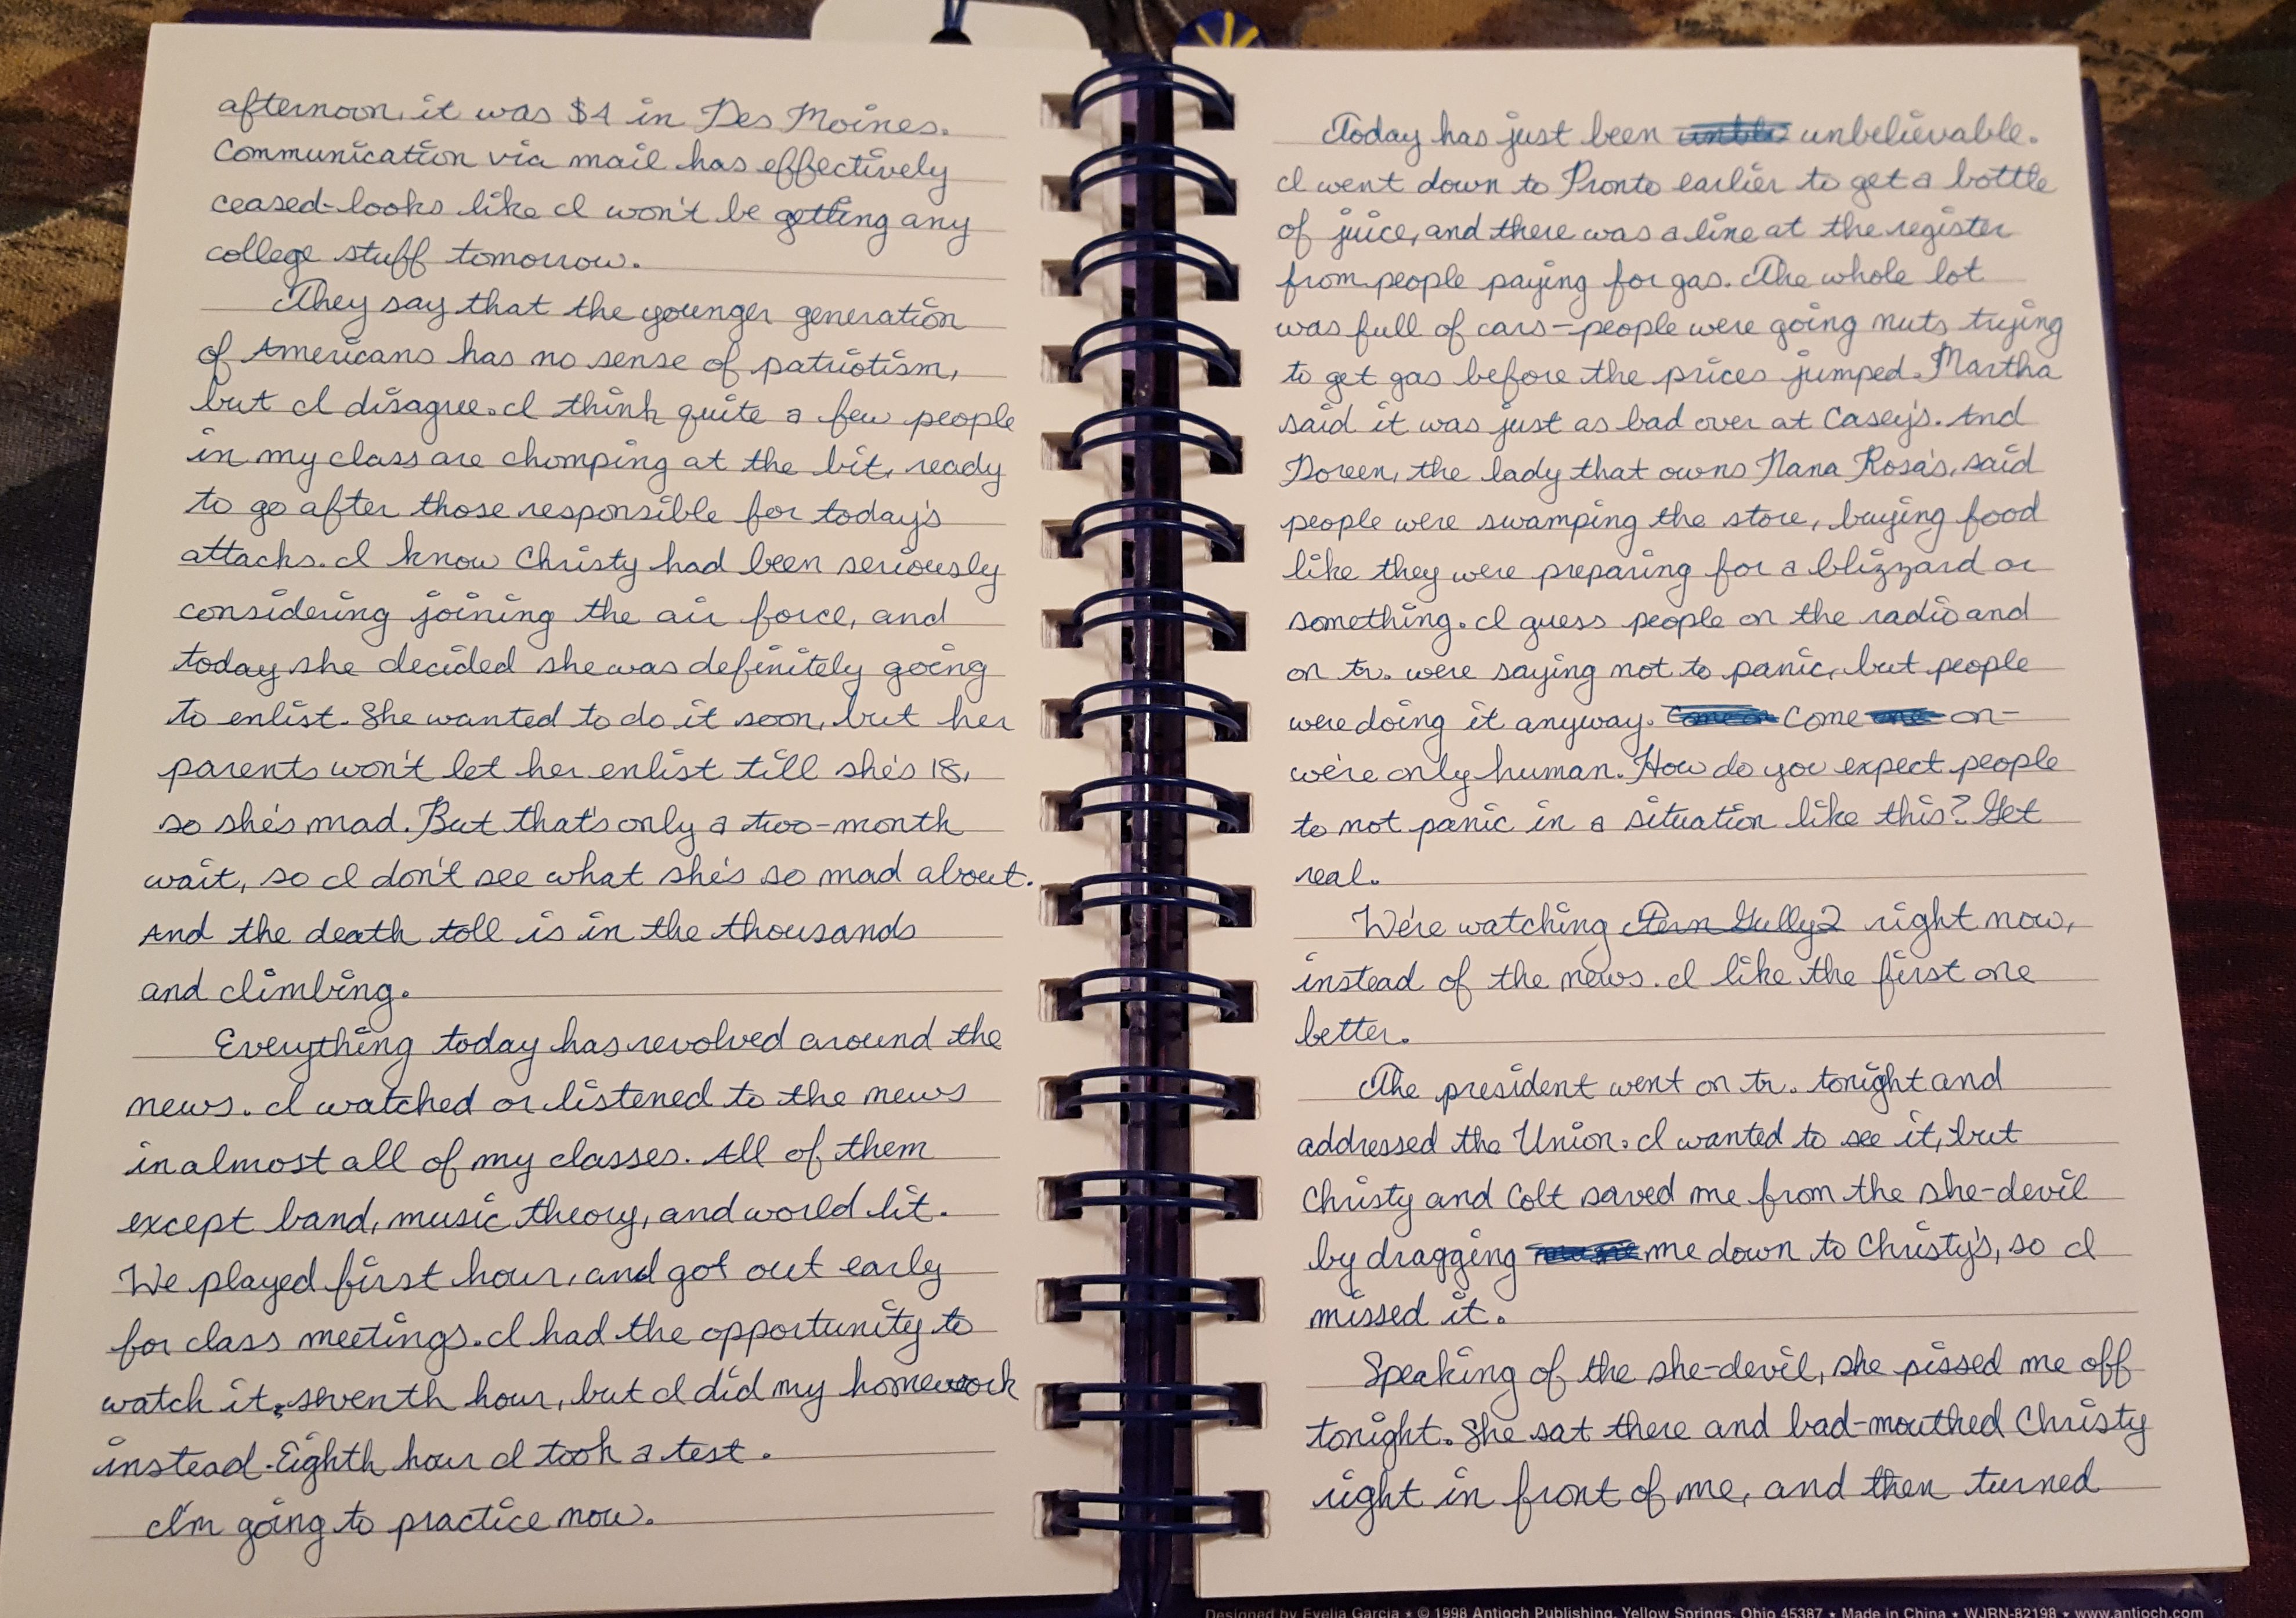 afternoon, it was $4 in Des Moines.
Communication via mail has effectively
ceased-looks like I won't be getting any
college stuff tomorrow.
They say that the younger generation
of Americans has no sense of patriotism,
but I disagree. I think quite a few people
in my class are chomping at the bit, ready
to go after those responsible for today's
attacks. I know Christy had been seriously
considering joining the air force, and
today she decided she was definitely going
to enlist. She wanted to do it soon, but her
parents won't let her enlist till she's 18,
so she's mad. But that's only a two-month
wait, so I don't see what she's so mad about.
And the death toll is in the thousands
and climbing.
Everything today has revolved around the
news. I watched or listened to the news
in almost all of my classes. All of them
except band, music theory, and world lit.
We played first hour, and got out early
for class meetings. I had the opportunity to
watch it, seventh hour, but I did my homework
instead. Eighth hour I took a test.
I'm going to practice now.
Today has just been unbelievable.
I went down to Pronto earlier to get a bottle
of juice, and there was a line at the register
from people paying for gas. The whole lot
was full of cars—people were going nuts trying
to get gas before the prices jumped. Martha
said it was just as bad over at Casey's. And
Doreen, the lady that owns Nana Rosa's, said
people were swamping the store, buying food
like they were preparing for a blizzard or
something. I guess people on the radio and
on tv. were saying not to panic, but people
were doing it anyway. Come on-
we're only human. How do you expect people
to not panic in a situation like this? Get
real.
We're watching Fern Gully 2 right now,
instead of the news. I like the first one
better.
The president went on tv. tonight and
addressed the Union. I wanted to see it, but
Christy and Colt saved me from the she-devil
by dragging me down to Christy's, so I
missed it.
Speaking of the she-devil, she pissed me off
tonight. She sat there and bad-mouthed Christy
right in front of me, and then turned
Designed by Evelia Garcia ★ © 1998 Antioch Publishing, Yellow Springs, Ohio 45387 ★ Made in China ★ WJRN-82198 ★ www.antioch.com